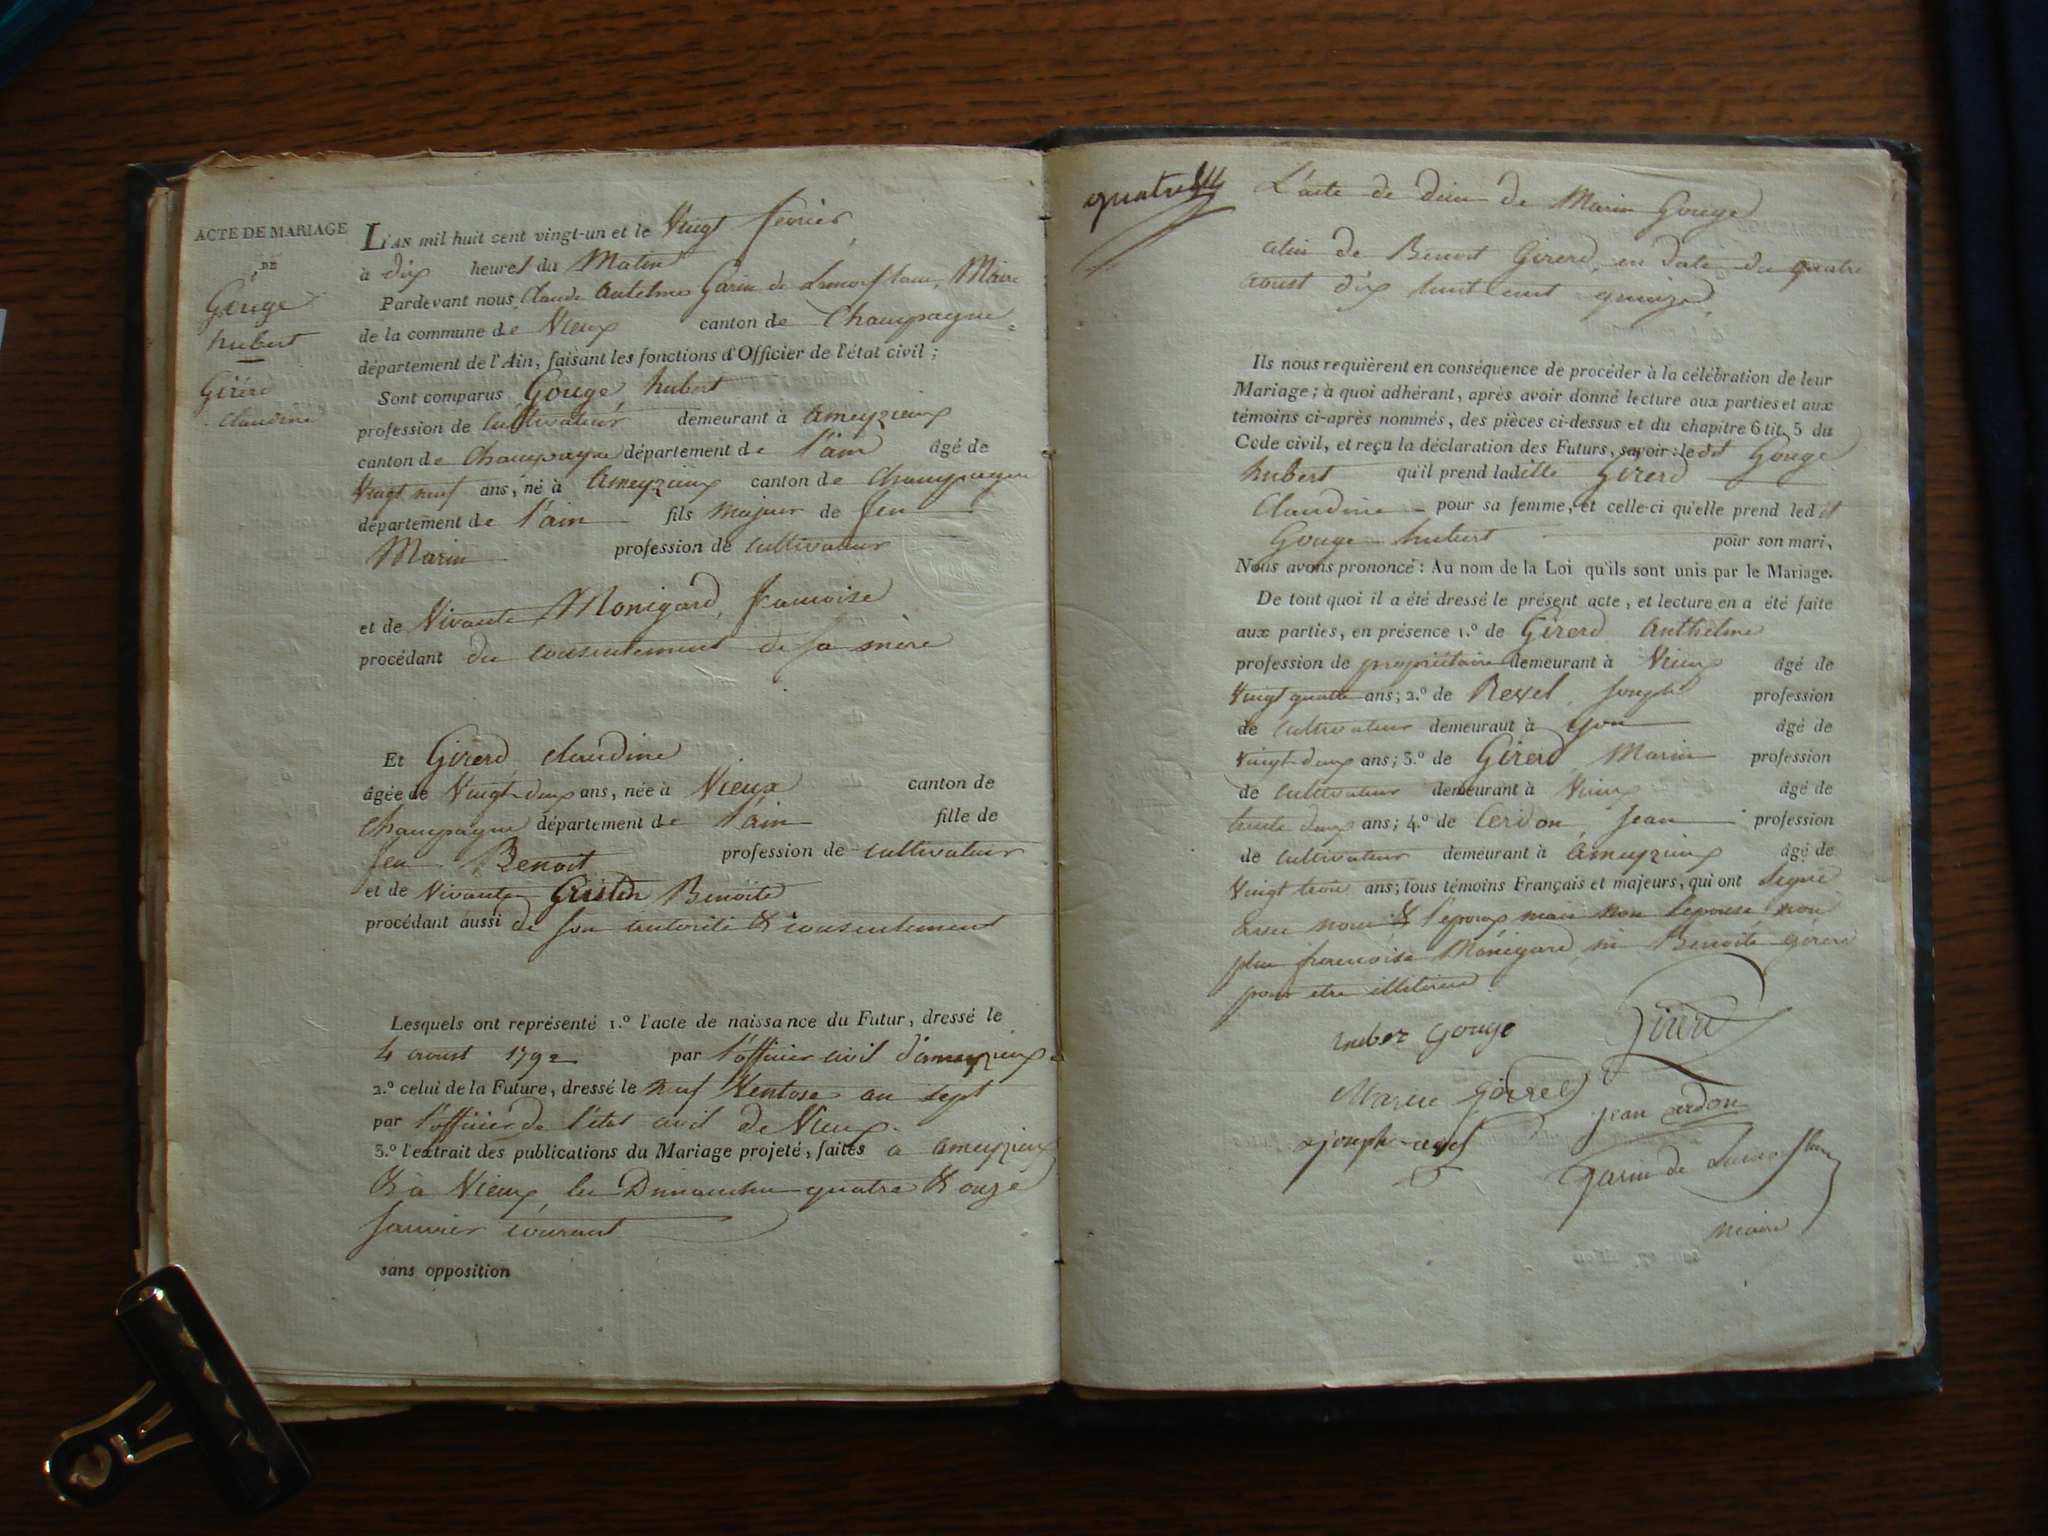 ACTE DE MARIAGE
DE
Gouge
hubert
Girerd
claudine
L'AN mil huit cent vingt-un et le Vingt fevrier
à dix heures du Matin
Pardevant nous Claude Antelme Garin de Lamorflan, Maire
de la commune de Vieux canton de Champagne
département de l'Ain, faisant les fonctions d'Officier de l'état civil ;
Sont comparus Gouge hubert
profession de cultivateur demeurant à ameyzieux
canton de Champagne département de l'ain âgé de
Vingt neuf ans, né à Ameyzieux canton de Champagne
département de l'ain fils majeur de feu
Marin profession de cultivateur
et de Vivante Monigard, francoise
procédant du consentement de sa mère
Et Girerd claudine
âgée de Vingt-deux ans, née à Vieux canton de
Champagne département de l'ain fille de
feu Benoit profession de cultivateur
et de Vivante Benoite
procédant aussi de son autorité & consentement
Lesquels ont représenté 1.º l'acte de naissance du Futur, dressé le
4 aoust 1792 par l'officier civil d'ameyzieux
2.º celui de la Future, dressé le neuf Ventose an sept
par l'officier de l'état civil de Vieux
3.º l'extrait des publications du Mariage projeté, faites a ameyzieux
& à Vieux les Dimanches quatre & onze
Janvier courant
sans opposition
L'acte de deces de Marin Gouge
celui de Benoit Girerd, en date du quatre
aoust dix huit cent quinze
Ils nous requièrent en conséquence de procéder à la célébration de leur
Mariage ; à quoi adhérant, après avoir donné lecture aux parties et aux
témoins ci-après nommés, des pièces ci-dessus et du chapitre 6 tit. 5 du
Code civil, et reçu la déclaration des Futurs, savoir : ledit Gouge
hubert qu'il prend ladite Girerd
Claudine pour sa femme, et celle-ci qu'elle prend ledit
Gouge hubert pour son mari,
Nous avons prononcé : Au nom de la Loi qu'ils sont unis par le Mariage.
De tout quoi il a été dressé le présent acte, et lecture en a été faite
aux parties, en présence 1.º de Girerd Anthelme
profession de propriétaire demeurant à Vieux âgé de
Vingt quatre ans ; 2.º de Rexel Joseph profession
de cultivateur demeurant à yon âgé de
vingt-deux ans ; 3.º de Girerd Marin profession
de cultivateur demeurant à Vieux âgé de
trente deux ans ; 4.º de Cerdon Jean profession
de cultivateur demeurant à Ameyzieux âgé de
Vingt trois ans ; tous témoins Français et majeurs, qui ont signé
avec nous & l'epoux mais non l'epouse non
plus francoise Monigard ni Benoite
pour etre illiterés
huber gouge Girerd
Marin Girerd
jean cerdon
joseph
Garin de Lamorflan
maire